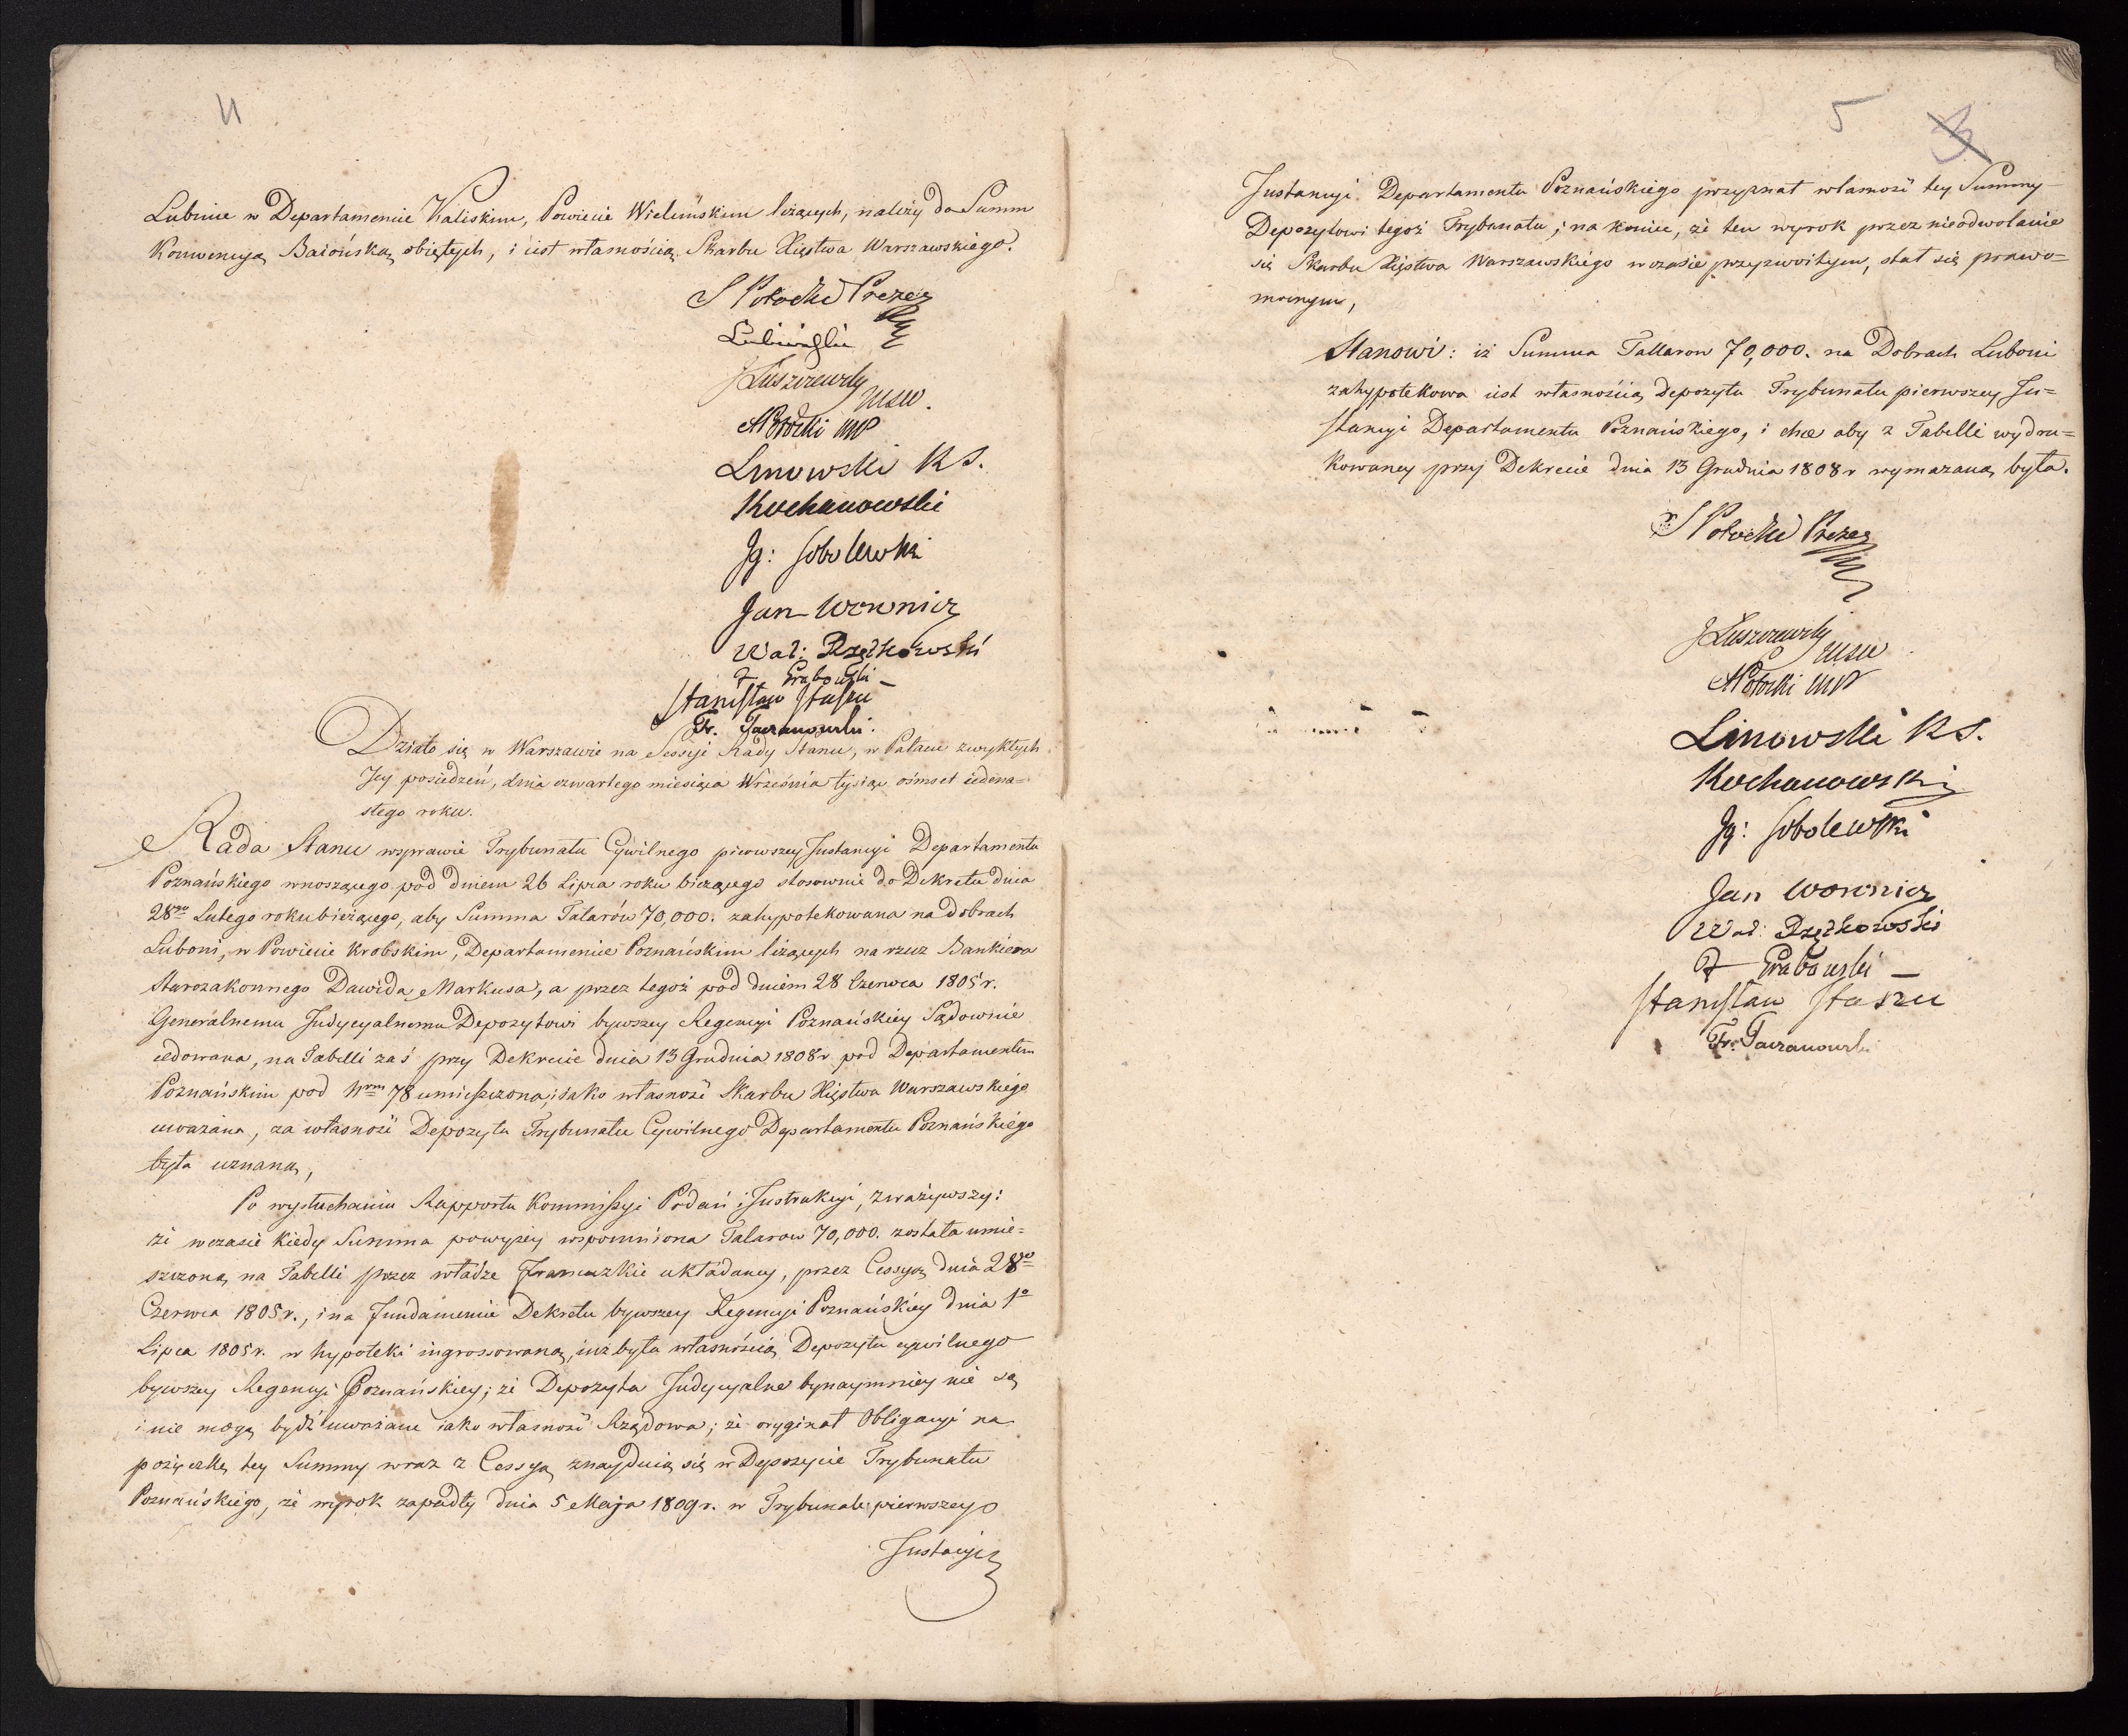 4
Lubinie w Departamencie Kaliskim, Powiecie Wieluńskim leżących, należy do Summ
Konwencyą Baiońską obiętych, i iest własnością Skarbu Xięstwa Warszawskiego.
S Potocki Prezes
Lubieński
J Łuszczewsky MSW.
A Potocki MP
Linowski RS.
Kochanowski
Ig: Sobolewski
Jan Woronicz
Wal: Rzętkowski
F Grabowski
Stanisław Staszic
Fr. Taczanowski.
Działo się w Warszawie na Sessyi Rady Stanu, w Pałacu zwykłych
Jey posiedzeń, dnia czwartego miesiąca Września tysiąc ośmset iedena=
stego roku.
Rada Stanu wsprawie Trybunału Cywilnego pierwszey Instancyi Departamentu
Poznańskiego wnoszącego pod dniem 26 Lipca roku bieżącego stosownie do Dekretu dnia
28go Lutego roku bieżącego, aby Summa Talarów 70,000. zahypotekowana na dobrach
Luboni, w Powiecie Krobskim, Departamencie Poznańskim leżących na rzecz Bankiera
Starozakonnego Dawida Markusa, a przez tegoż pod dniem 28 Czerwca 1805 r.
Generalnemu Judycyalnemu Depozytowi bywszey Regencyi Poznańskiey Sądownie
cedowana, na Tabelli zaś przy Dekrecie dnia 13 Grudnia 1808 r pod Departamentem
Poznańskim pod Nrem 78 umieszczona, iako własność Skarbu Xięstwa Warszawskiego
uważana, za własność Depozytu Trybunału Cywilnego Departamentu Poznańskiego
była uznaną,
Po wysłuchaniu Rapportu Kommissyi Podań i Instrukcyi, zważywszy:
że wczasie kiedy Summa powyżey wspomniona Talarow 70,000. została umie=
szczoną na Tabelli przez władze Francuzkie układaney, przez Cessyą dnia 28go
Czerwca 1805 r., i na fundamencie Dekretu bywszey Regencyi Poznańskiey dnia 1o
Lipca 1805 r. w hypoteki ingrossowaną, iuż była własnością Depozytu cywilnego
bywszey Regencyi Poznańskiey; że Depozyta Judycyalne bynaymniey nie są
i nie mogą bydź uważane iako własność Rządowa; że oryginał Obligacyi na
pożyczkę tey Summy wraz z Cessyą znayduią się w Depozycie Trybunału
Poznańskiego, że wyrok zapadły dnia 5 Maja 1809 r. w Trybunale pierwszey
Instancyi
5
3
Instancyi Departamentu Poznańskiego przyznał własność tey Summy
Depozytowi tegoż Trybunału; na koniec, że ten wyrok przez nieodwołanie
się Skarbu Xięstwa Warszawskiego wczasie przyzwoitym, stał się prawo=
mocnym,
Stanowi: iż Summa Tallarow 70,000. na Dobrach Luboni
zahypotekowa iest własnością depozytu Trybunału pierwszey In=
stancyi Departamentu Poznańskiego, i chce aby z Tabelli wydru=
kowaney przy Dekrecie dnia 13 Grudnia 1808 r wymazaną była.
S Potocki Prezes
J Łuszczewsky MSW
A Potocki MP
Linowski RS.
Kochanowski
Ig: Sobolewski
Jan Woronicz
Wal: Rzętkowski
F Grabowski
Stanisław Staszic
Fr. Taczanowski